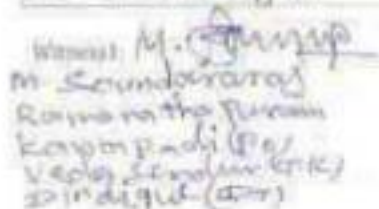 Witness: M.
M. Soundararaj
Ramanathapuram
(Po)
Vedasandur (TK)
Dindigul (DT)